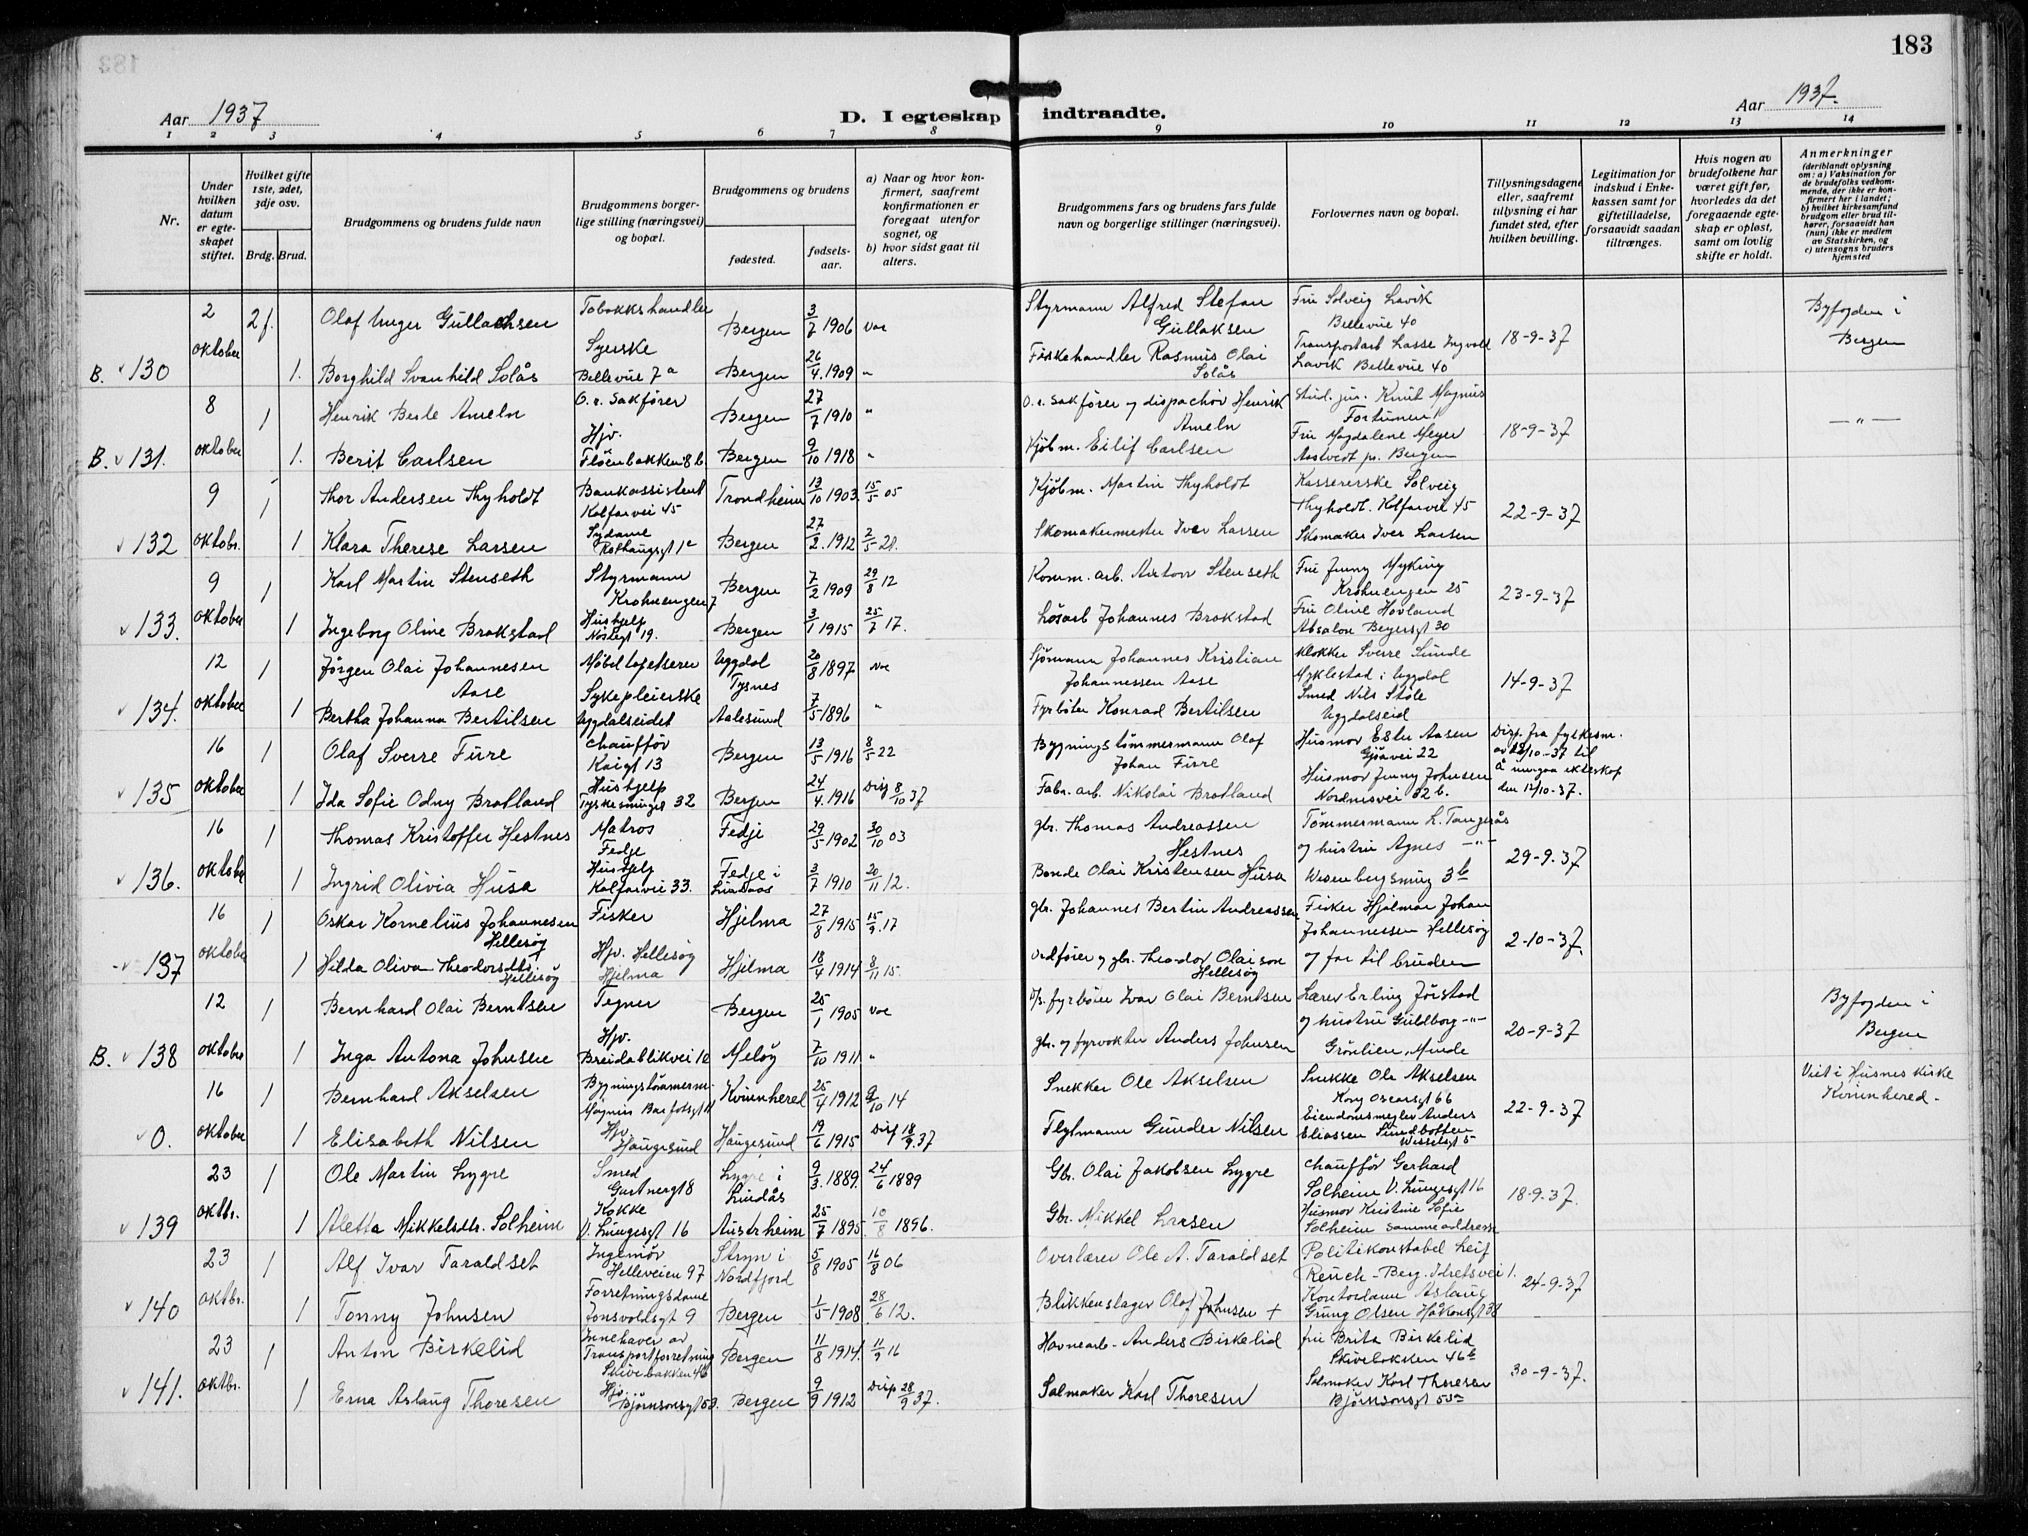 183
Aar 1937
D. I egteskap indtraadte.
Aar 1937.
1 2 3 4 5 6 7 8 9 10 11 12 13 14
Nr.
Under hvilken datum er egteskapet stiftet.
Hvilket gifte 1ste, 2det, 3dje osv.
Brdg. Brud.
Brudgommens og brudens fulde navn
Brudgommens borgerlige stilling (næringsvei) og bopæl.
Brudgommens og brudens
fødested.
fødselsaar.
a) Naar og hvor konfirmert, saafremt konfirmationen er foregaat utenfor sognet, og
b) hvor sidst gaat til alters.
Brudgommens fars og brudens fars fulde navn og borgerlige stillinger (næringsvei).
Forlovernes navn og bopæl.
Tillysningsdagene eller, saafremt tillysning ei har fundet sted, efter hvilken bevilling.
Legitimation for indskud i Enkekassen samt for giftetilladelse, forsaavidt saadan tiltrænges.
Hvis nogen av brudefolkene har været gift før, hvorledes da det foregaaende egteskap er opløst, samt om lovlig skifte er holdt.
Anmerkninger
(deriblandt oplysning om: a) Vaksination for de brudefolks vedkommende, der ikke er konfirmert her i landet;
b) hvilket kirkesamfund brudgom eller brud tilhører, forsaavidt han (hun) ikke er medlem av Statskirken, og
c) utensogns bruders hjemsted
2 oktober 2 f. Olaf Unger Gullachsen Tobakkshandler Bergen 3/7 1906 Vac Styrmann Alfred Stefan Gullaksen Fru Solveig Lavik Bellevue 40 18-9-37 Byfogden i Bergen
B. 130 1. Borghild Svanhild Solås Syerske Bellevue 7a Bergen 26/4.1909 " Fiskehandler Rasmus Olai Solås Transportarb Lasse Ingvald Lavik Bellevue 40
8 oktober 1 Henrik Berle Ameln O.r. Sakfører Bergen 27/7 1910 " O.r. Sakfører og dispachør Henrik Ameln Stud. jur. Knut Magnus Fortunen 1 18-9-37 —"—
B. 131. 1. Berit Carlsen Hjv. Fløenbakken 8b Bergen 9/10 1918 " Kjøbm. Eilif Carlsen Fru Magdalene Meyer Aastvedt pr. Bergen
9 oktobr. 1 Thor Andersen Thyholdt Bankassistent Kalfarvei 45 Trondheim 13/10 1903. 15/5 05 Kjøbm. Martin Thyholdt Kassererske Solveig Thyholdt. Kalfarvei 45 22-9-37
132 1 Klara Therese Larsen Sydame Rothaugsgt 1c Bergen 27/2.1912 2/5 21. Skomakermester Iver Larsen Skomaker Iver Larsen
9 oktober 1 Karl Martin Stenseth Styrmann Krohnengen 7 Bergen 7/2 1909 29/8 12 Komm. arb. Anton Stenseth Fru Jenny Myking Krohnengen 25 23-9-37
133. 1 Ingeborg Oline Brakstad Hushjelp Nostegt 19. Bergen 3/1 1915 25/7 17. Løsarb Johannes Brakstad Fru Oline Hovland Absalon Beyersgt 30
12 oktober 1 Jørgen Olai Johannesen Aase Møbeltapetserer Uggdal Tysnes 20/8 1897 Vac Sjømann Johannes Kristian Johannessen Aase Klokker Sverre Sunde Myklestad i Uggdal 14-9-37
134. 1 Bertha Johanna Bertilsen Sykepleierske Uggdalseidet Aalesund 7/5 1896 " Fyrbøter Konrad Bertilsen Smed Nils Støle Uggdalseid
16 oktober 1 Olaf Sverre Furre Chauffør Kaigt 13 Bergen 13/5 1916 8/5 22 Bygningstømmermann Olaf Johan Furre Husmor Ester Aasen Gjøavei 22 Disp. fra fylkesm.
135 1 Ida Sofie Odny Bratland Hushjelp 32 Bergen 24/4.1916 Disp 8/10 37 Fabr. arb. Nikolai Bratland Husmor Jenny Johnsen Nordnesvei 32 b.
16 oktober 1 Thomas Kristoffer Hestnes Matros Fedje Fedje 29/5 1902 30/10 03 gbr. Thomas Andreassen Hestnes Tømmermann L. Tangerås og hustru Agnes —"— 29-9-37
136. 1 Ingrid Olivia Husa Hushjelp Kalfarvei 33. Fedje i Lindaas 3/7 1910 20/11 12. Bonde Olai Kristensen Husa Wesenbergsmug 3b
16 oktober 1 Oskar Kornelius Johannesen Hellesøy Fisker Hjelma 27/8 1915 15/9 17 gbr. Johannes Bertin Andreassen Fisker Hjalmar Johan Johannessen Hellesøy 2-10-37.
137 1 Hilda Oliva Theodorsdtr. Hellesøy Hjv. Hellesøy Hjelma Hjelma 18/4 1914 8/11 15. Ordfører og gbr. Theodor Olaison Hellesøy og far til bruden
12 oktober 1 Bernhard Olai Berntsen Tegner Bergen 25/1 1905 Vac fyrbøter Ivar Olai Berntsen Lærer Erling Jørstad og hustru Guldborg —"— 20-9-37 Byfogden i Bergen
B. 138 1 Inga Antona Johnsen Hjv. Breidablikvei 12 Meløy 7/10 1911 " gbr. og fyrvokter Anders Johnsen Grønlien, Minde
16 oktober 1 Bernhard Akselsen Bygningstømmerm. Magnus Barfotsgt Kvinnhered 25/4 1912 9/10 14 Snekker Ole Akselsen Snekke Ole Akselsen Kong Oscarsgt 66 22-9-37 Viet i Husnes kirke Kvinnhered.
0. 1 Elisabeth Nilsen Hjv. Haugesund Haugesund 19/6 1915 Disp 18/9.37 Flytmann Gunder Nilsen Eiendomsmegler Anders Eliassen Sundbotten Wesselsgt 5
23 oktbr. 1 Ole Martin Lygre Smed Gartnergt 8 Lygre i Lindås 9/3.1889. 24/6 1889 Gbr. Olai Jakobsen Lygre Chauffør Gerhard Solheim V. Lungesgt 16 18.9.37.
139 1 Aletta Mikkelsdtr. Solheim Kokke V. Lungesgt 16 Austrheim 25/7 1895. 10/8 1896. Gbr. Mikkel Larsen Husmor Kristine Sofie Solheim samme adresse
23 oktbr. 1 Alf Ivar Taraldset Ingeniør Helleveien 97 Stryn i Nordfjord 5/8 1905 16/8 06 Overlærer Ole A. Taraldset Politikonstabel Leif Reuch-Berg. Idretsvei 1. 24-9-37
140 1 Tonny Johnsen Forretningsdame Jonsvoldsgt 9 Bergen 1/5 1908 28/6 12. Blikkenslager Olaf Johnsen + Kontordame Aslaug Grung Olsen Håkonsgt 38
23 oktbr. 1 Anton Birkelid Innehaver av Transportforretning Skivebakken 46 Bergen 11/8 1914. 11/9 16 Havnearb. Anders Birkelid fru Brita Birkelid Skivebakken 46b 30-9-37.
141. 1 Erna Aslaug Thoresen Hjv. Bjørnsonsgt Bergen 9/9 1912 Disp 28/9 37. Salmaker Karl Thoresen Salmaker Karl Thoresen Bjørnsonsgt 55a